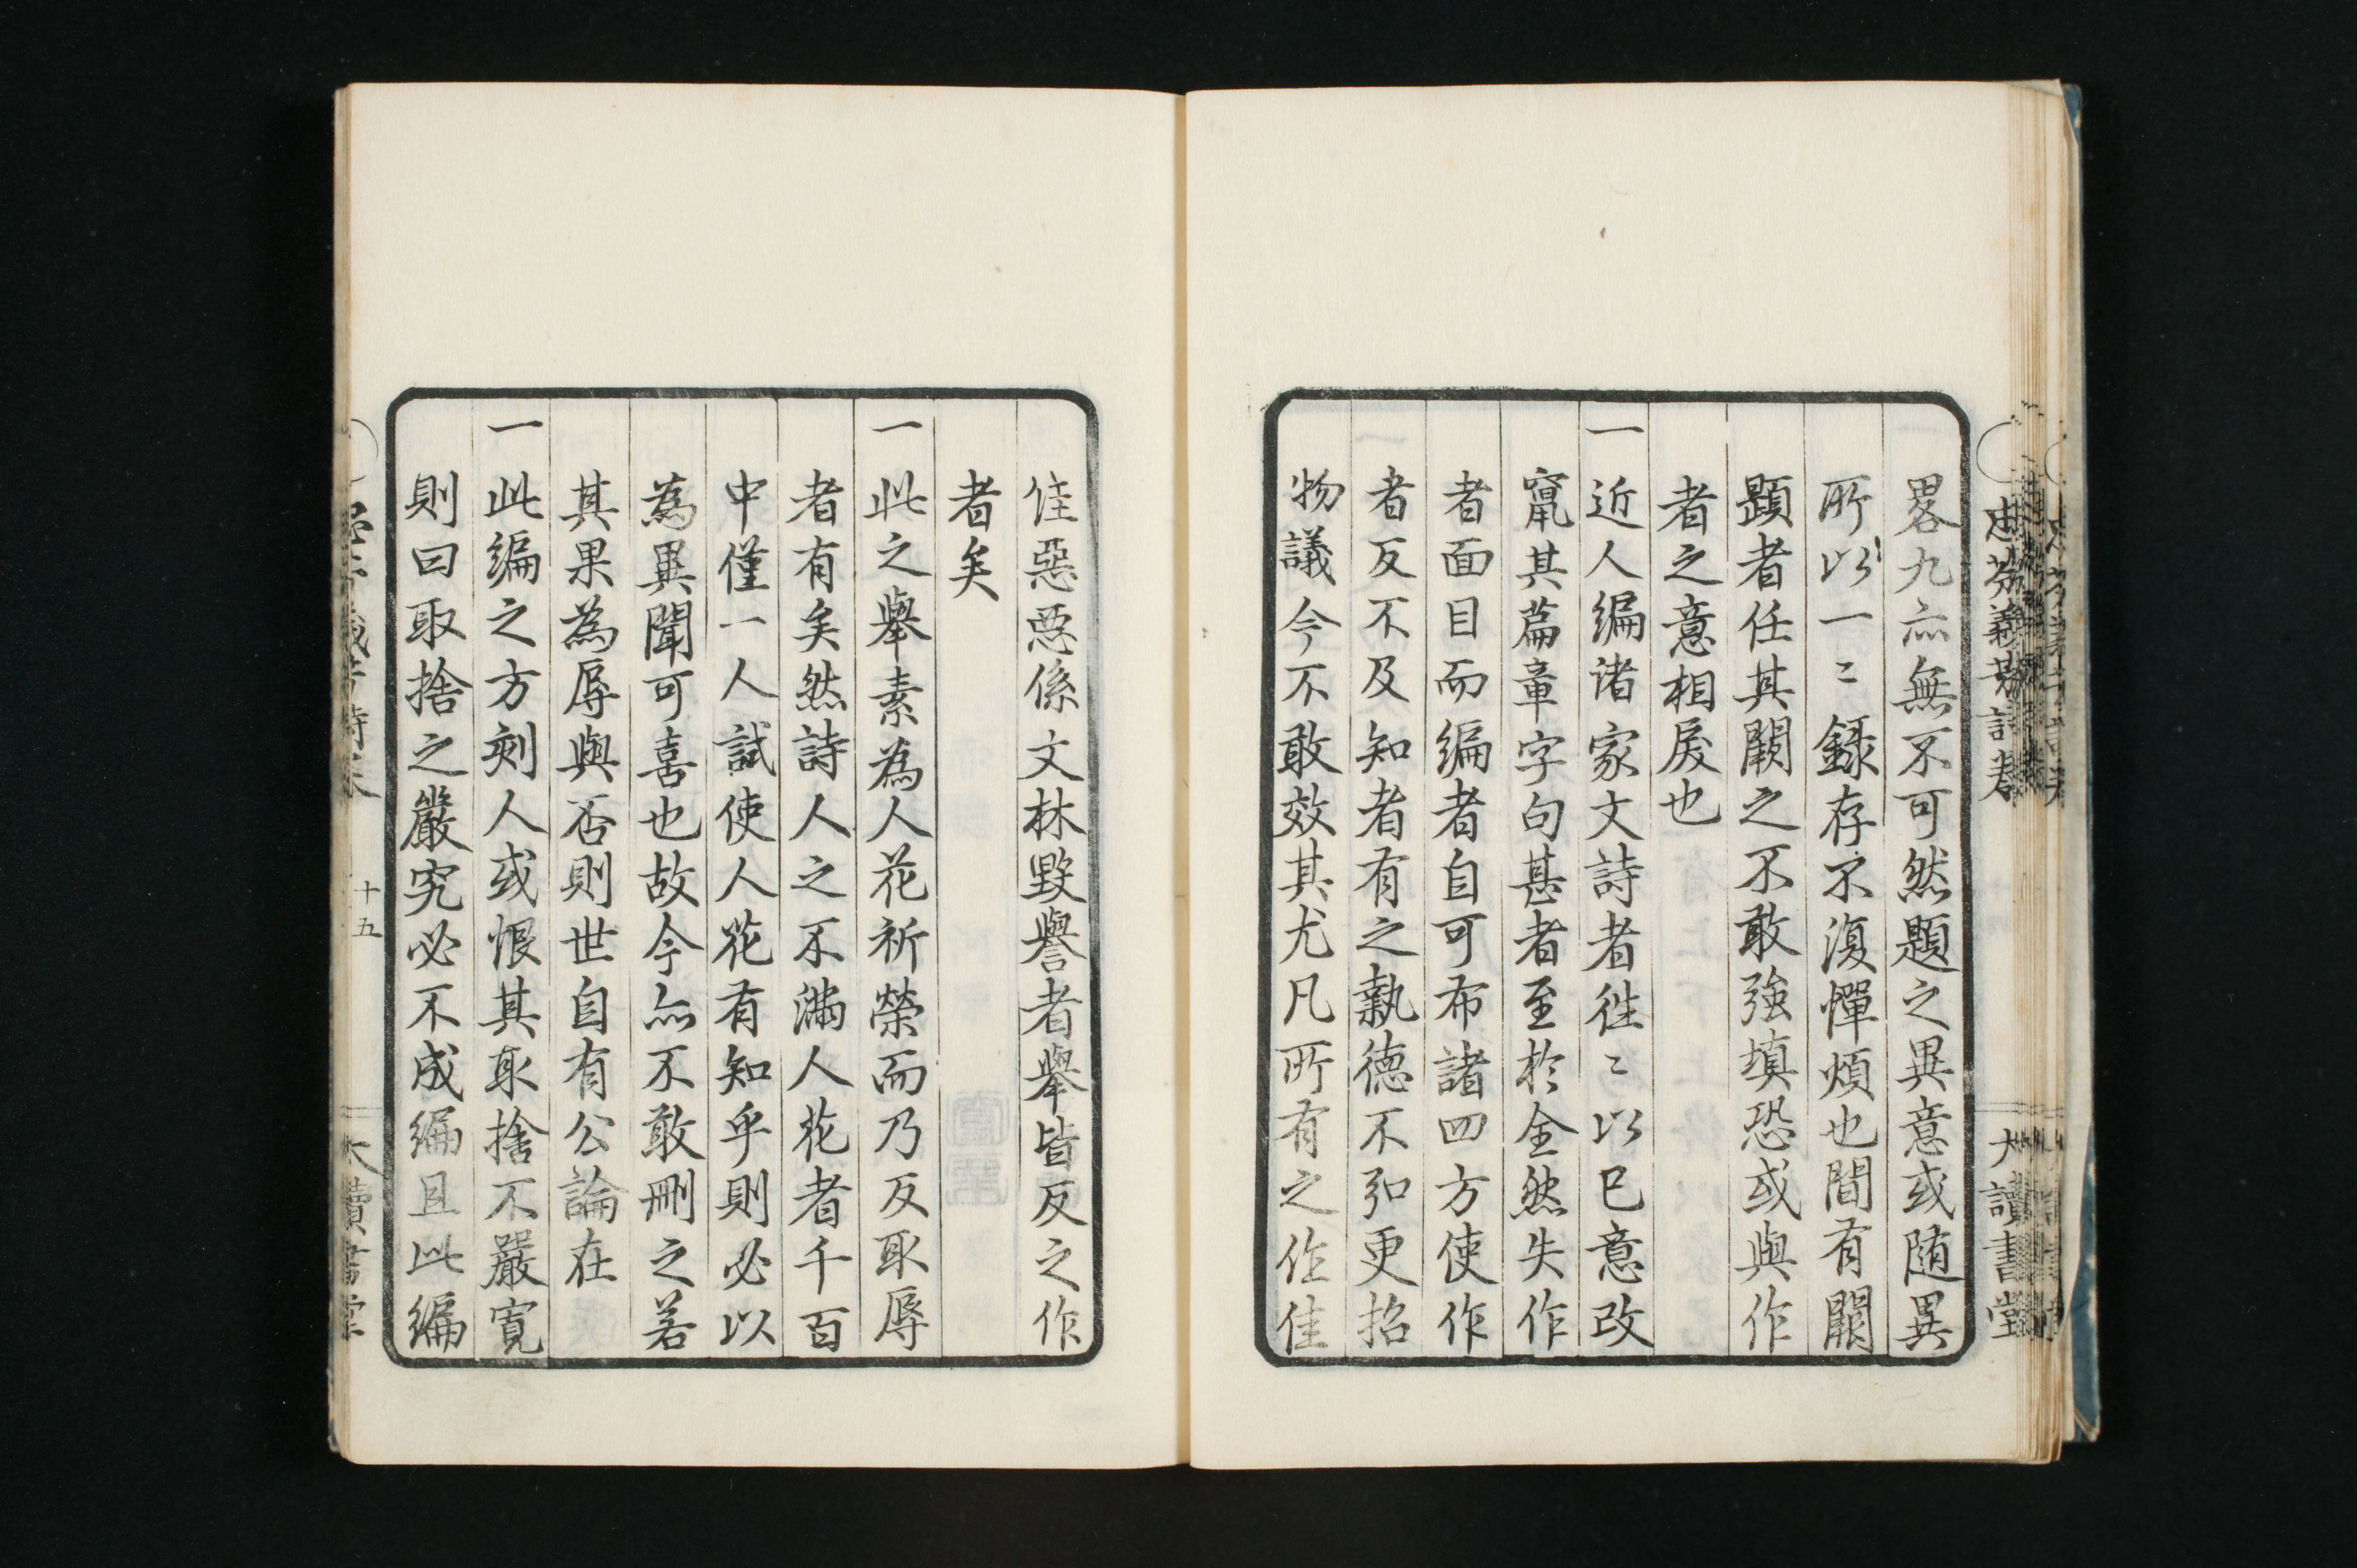 畧九亦無不可然題之異意或随異
所以一〻録存不復憚煩也間有闕
題者任其闕之不敢強填恐或與作
者之意相戻也
一近人編诸家文詩者徃〻以已意改
竄其篇章字句甚者至於全然失作
者面目而編者自可布諸四方使作
者反不及知者有之執德不弘更招
物議今不敢效其尤凡所有之作佳
佳惡惡係文林毀譽者舉皆反之作
者矣
一此之舉素為人花祈榮而乃反取辱
者有矣然詩人之不滿人花者千百
中僅一人試使人花有知乎則必以
為異聞可喜也故今亦不敢刪之若
其果為辱與否則世自有公論在
一此編之方刻人或恨其取捨不嚴寬
則曰取捨之嚴究必不成編且此編
十五
大讀書堂